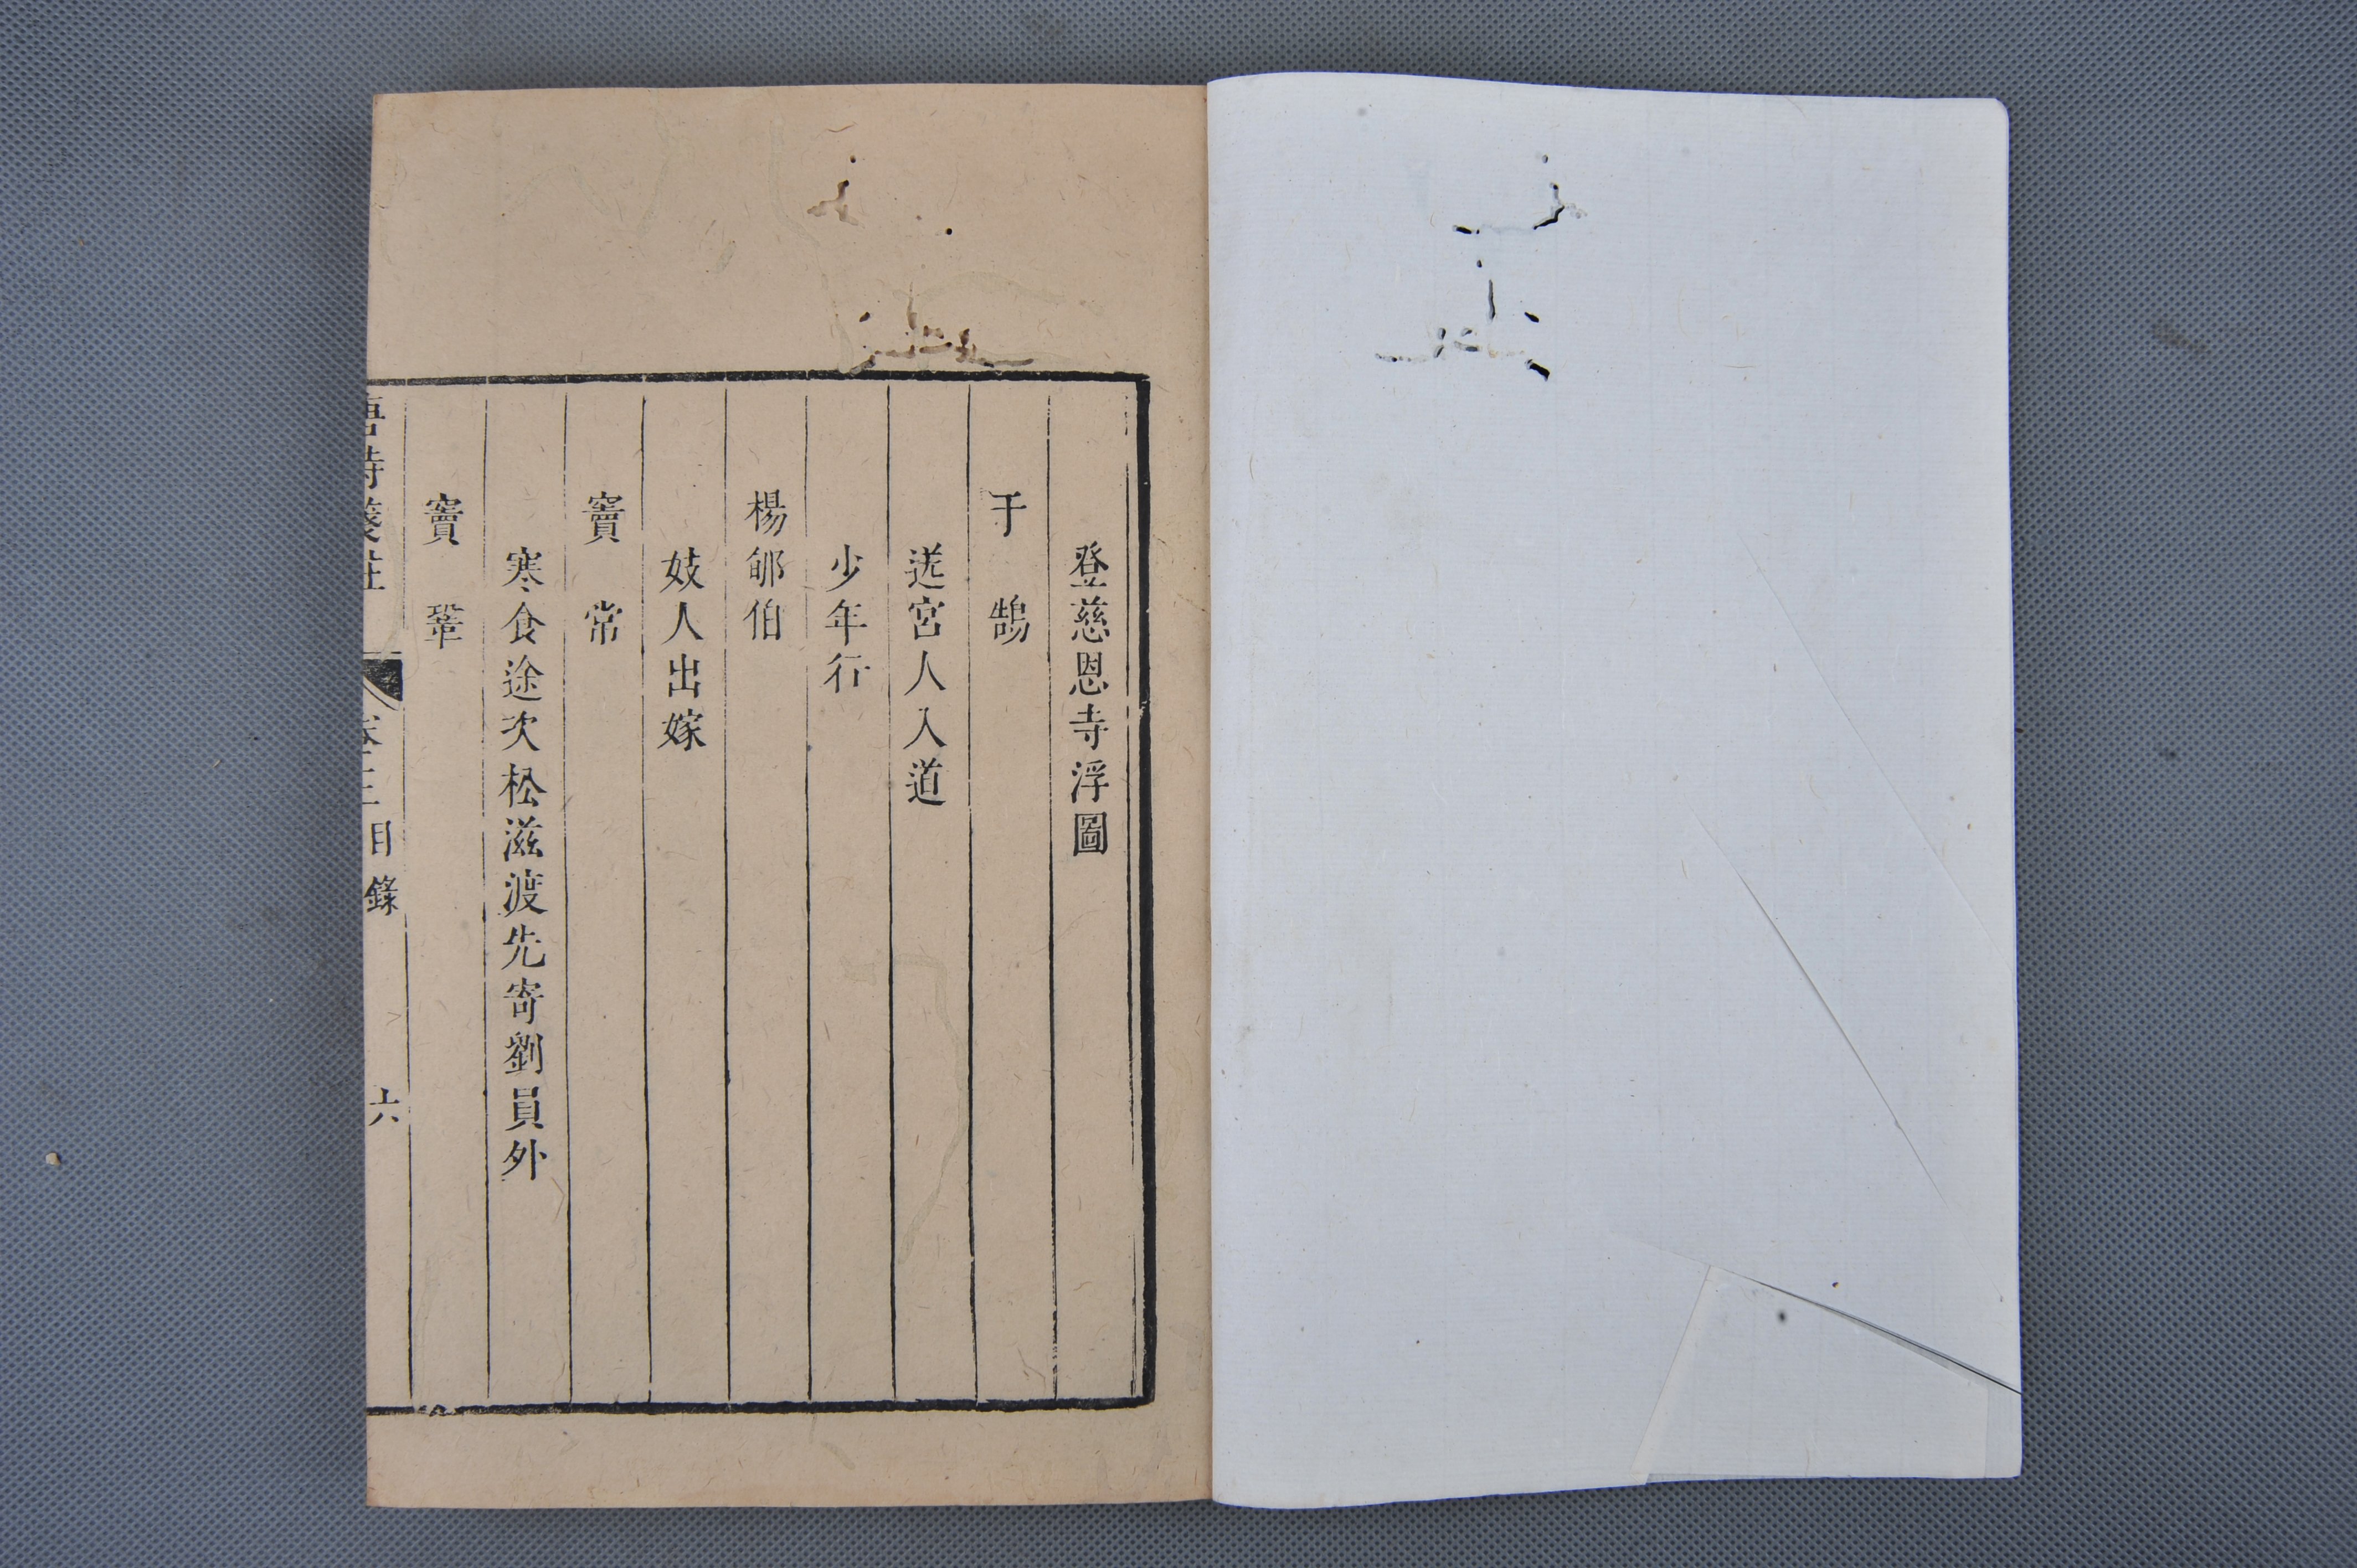 登慈恩寺浮圖
于鵠
送宮人入道
少年行
楊郇伯
妓人出嫁
竇常
寒食途次松滋渡先寄劉員外
竇鞏
唐詩箋註 卷三目錄 六